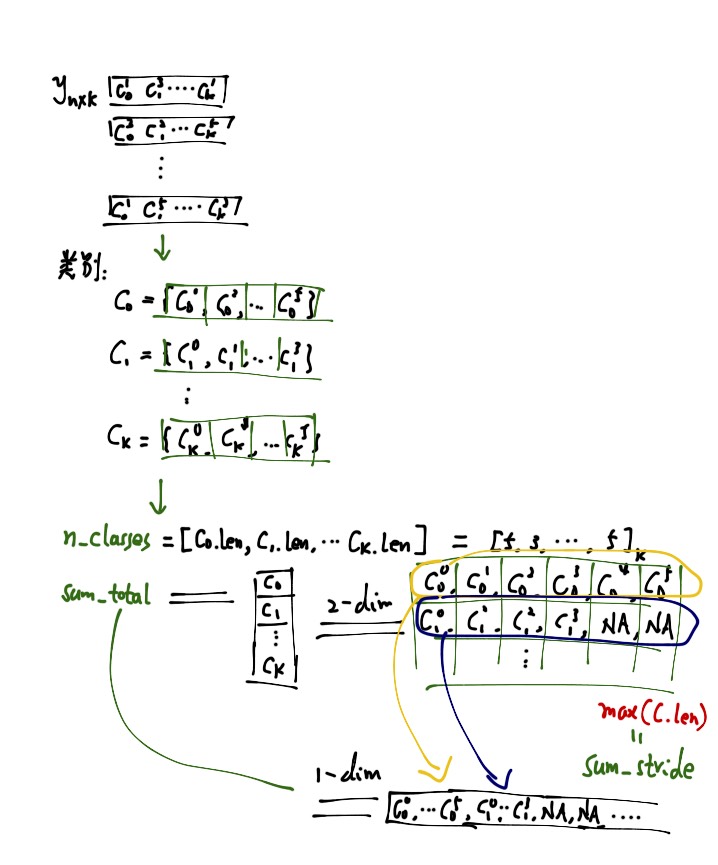 y_{n×k} |C_0^1 C_1^3 ···· C_k^1|
|C_0^2 C_1^2 ··· C_k^5|
⋮
|C_0^1 C_1^5 ···· C_k^3|
类别:
C_0 = {C_0^0, C_0^2, ... C_0^5}
C_1 = {C_1^0, C_1^1, ... C_1^3}
⋮
C_K = {C_K^0, C_K^4, ... C_K^5}
n_classes = [C_0.len, C_1.len, ··· C_K.len] = [5, 3, ···, 5]_K
sum_total
C_0
C_1
⋮
C_K
2-dim
C_0^0, C_0^1, C_0^2, C_0^3, C_0^4, C_0^5
C_1^0, C_1^1, C_1^2, C_1^3, NA, NA
⋮
max(C.len)
=
sum_stride
1-dim
C_0^0, ··· C_0^5, C_1^0 ·· C_1^3, NA, NA ····